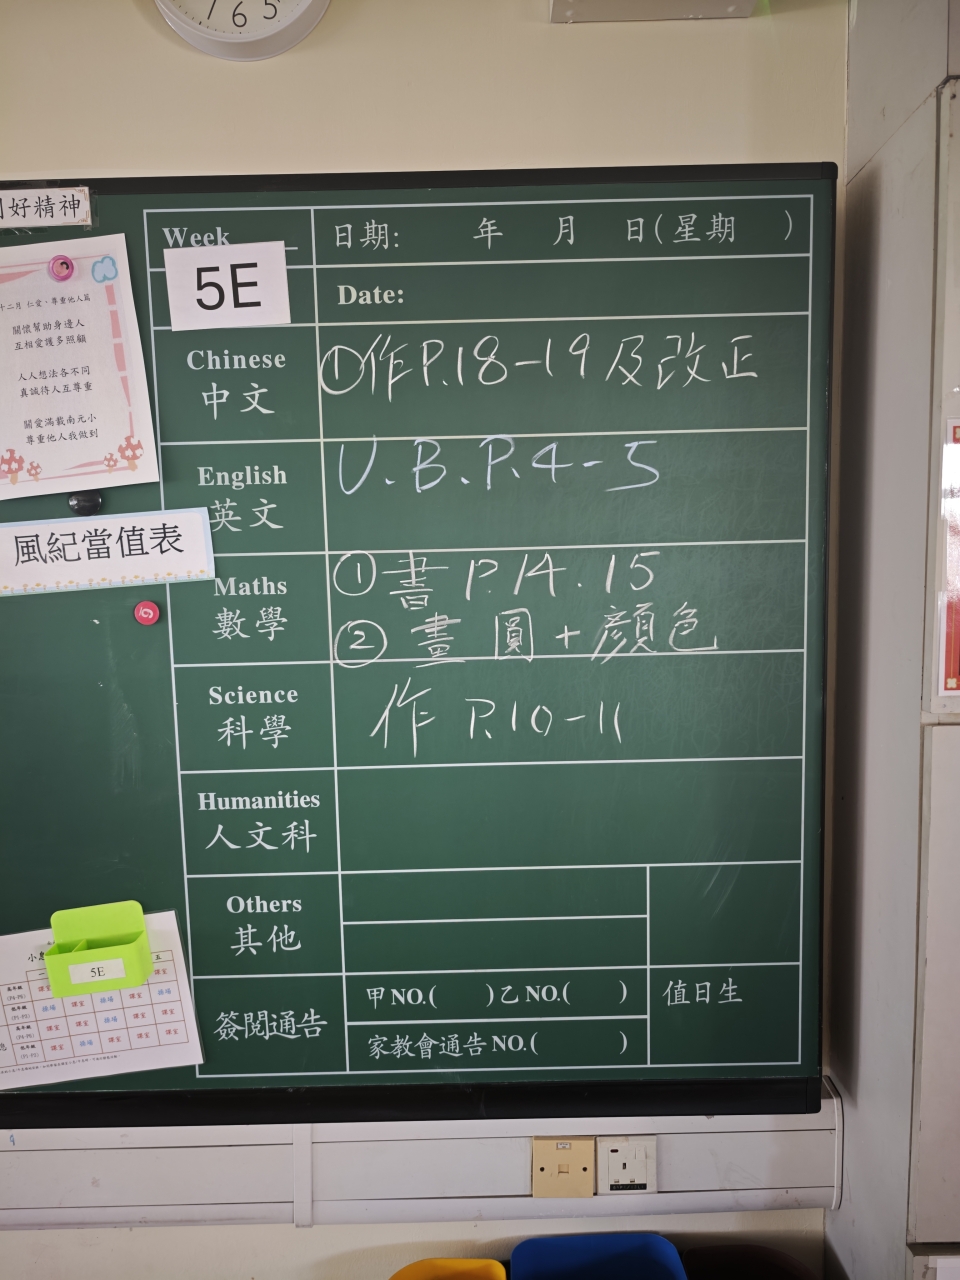 6 5
好精神
Week
5E
日期: 年 月 日(星期 )
Date:
十二月 仁愛、尊重他人篇
關懷幫助身邊人
互相愛護多照顧
人人想法各不同
真誠待人互尊重
關愛滿載南元小
尊重他人我做到
Chinese
中文
①作P.18-19及改正
English
英文
U.B.P.4-5
風紀當值表
Maths
數學
①書 P.14.15
②畫 圓+顏色
Science
科學
作 P.10-11
Humanities
人文科
Others
其他
5E
簽閱通告
甲NO.( )乙NO.( )
家教會通告NO.( )
值日生